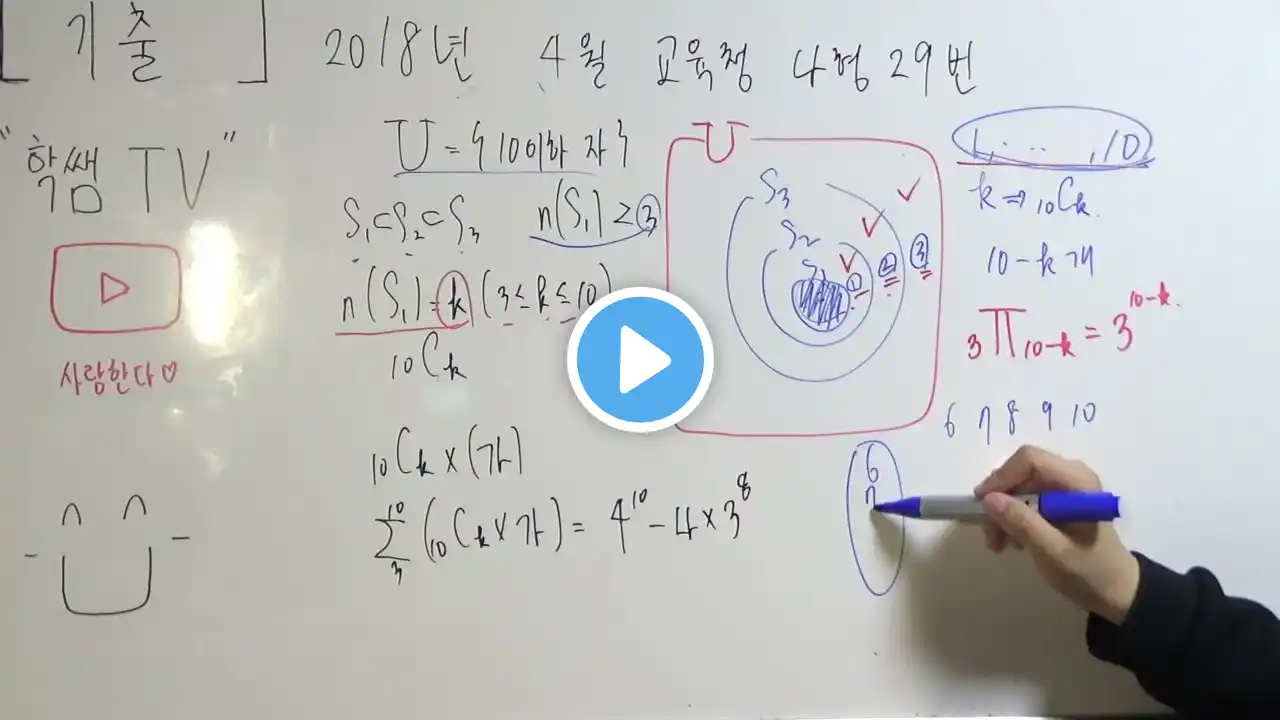 [ 기출 ] 2018년 4월 교육청 나형 29번
"학쌤 TV"
사랑한다♡
U = { 10이하 자 }
S₁⊂S₂⊂S₃ n(S₁) ≥ ③
n(S₁)=k (3≤k≤10)
₁₀Cₖ
₁₀Cₖ × (가)
10
∑ (₁₀Cₖ × 가) = 4¹⁰ - 4×3⁸
3
U
S₃
S₂
S₁
① ② ③
1, ‥ ‥ , 10
k ⇒ ₁₀Cₖ.
10-k개
₃∏₁₀₋ₖ = 3¹⁰⁻ᵏ.
6 7 8 9 10
6
7